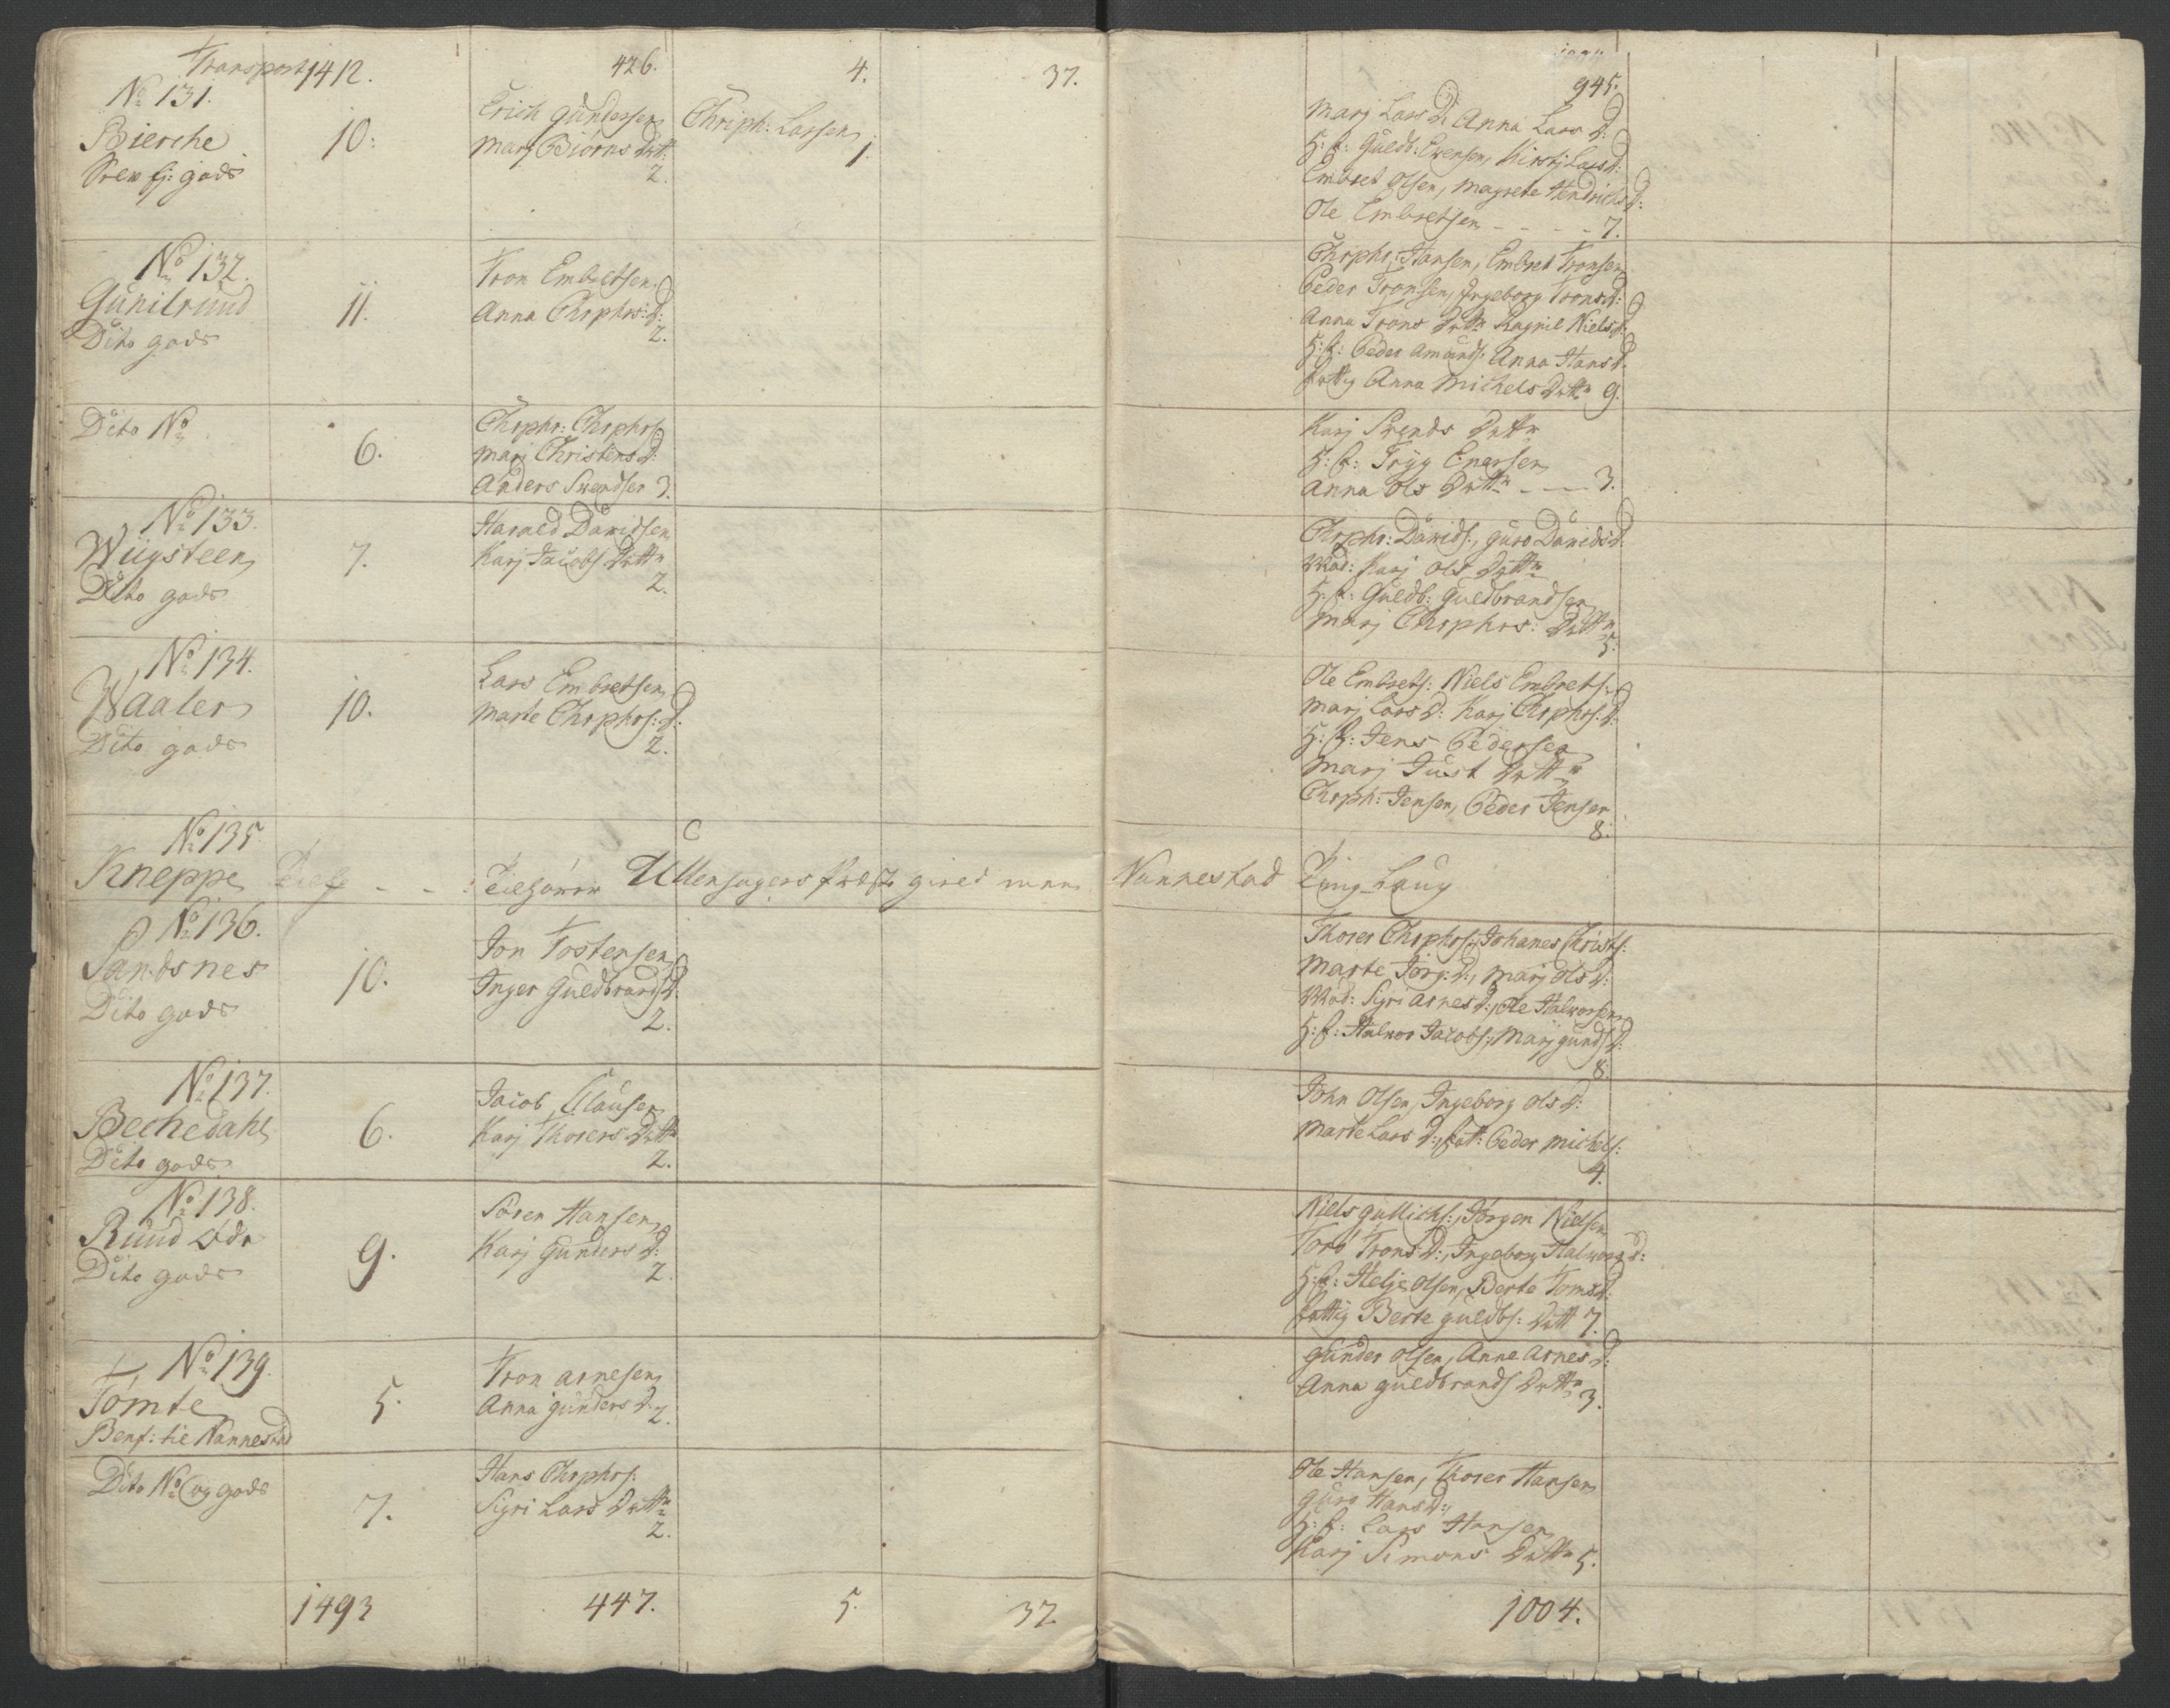 Transport 1412. 426. 4. 37. 945.
No 131.
Bierche
gods
10:
Erich Gundersen
Marj Biørns Dttr
2.
Chriph: Larsen
1.
Marj Lars D: Anna Lars D:
H: f: Guldb: Evensen, Kirstj Lars d:
Embret Olsen, Magrete Hendrichs d:
Ole Embretsen - - - - 7.
No 132.
Gunilrund
Dito gods
11.
Tron Embretsen
Anna Chrphrs: D:
2.
Chrphr: Hansen, Embret Tronsen
Peder Tronsen, Ingeborg Trons d:
Anna Trons Dttr Ragnil Niels d:
H: f: Peder Amunds: Anna Hans d.
fattig Anna Michels Dttr 9.
Dito No
6.
Chrphr: Chrphrs
Marj Christens D:
Anders Swendsen 3.
Karj Swends Dttr
H: f: Tryg Enersen
Anna Ols Dttr - - - 3.
No 133.
Wiigsteen
Dito gods
7.
Harald Davidsen
Karj Jacobs Dttr
2.
Chrphr: Davids:, Guro Davids d.
Mod: Karj Ols Dttr
H: f: Guldb: Guldbrandsen
Marj Chrphrs: Dttr
5.
No 134.
Waaler
Dito gods
10.
Lars Embretsen
Marte Chrphrs: D:
2.
Ole Embrets: Niels Embrets:
Marj Lars D: Karj Chrphrs: d:
H: f: Jens Pedersen
Marj Just Dttr
Chrph: Jensen, Peder Jensen
8.
No 135
Kneppe - - Ullensagers Nannestad Ting Laug
No 136.
Sandsnes
Dito gods
10.
Jon Tostensen
Inger Guldbrands D:
2.
Thorer Chrphrs: Johanes Christs:
Marte Jørg: D:, Marj Ols D:
Mod: Sigri Arnes d:, Ole Halworsen
H: f: Halwor Jacobs:, Marj Gunds D:
8.
No 137.
Bechedahl
Dito gods
6.
Jacob Clausen
Karj Thorers Dttr
2.
John Olsen, Ingeborg Ols D:
Marte Lars D:, fat: Peder Michels:
4.
No 138.
Ruud Øde
Dito gods
9.
Søren Hansen
Karj Gunders D:
2.
Niels Gullichs:, Jørgen Nielsen
Torb Trons D:, Ingeborg Halwors d:
H: f: Helje Olsen, Berte Toms d:
fattig Berte Guldbs: Dttr 7.
No 139.
Tømte
Benf: til Nannestad
5.
Tron Arnesen
Anna Gunders D. 2.
Gunder Olsen, Anne Arnes D:
Anna Guldbrands Dttr 3.
Dito No og gods
7.
Hans Chrphrs:
Sigri Lars Dttr
2.
Ole Hansen, Thorer Hansen
Guro Hans D:,
H: f: Lars Hansen
Karj Simons Dttr 5.
1493 447. 5. 37 1004.